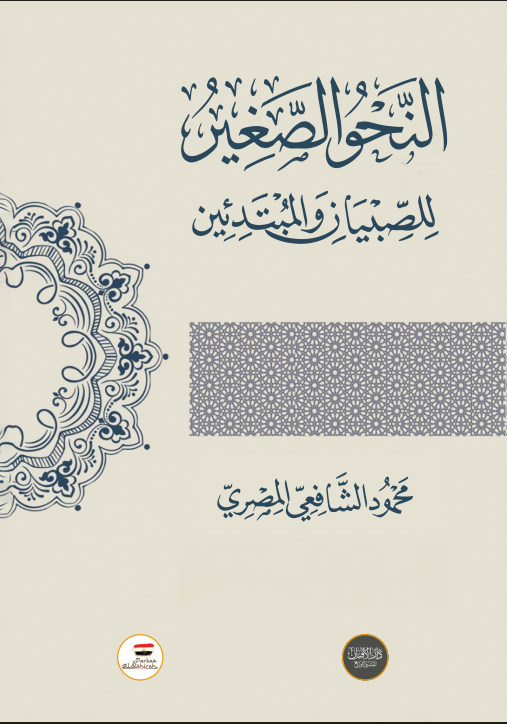 النَّحْوُ الصَّغِيرُ
لِلصِّبْيَانِ وَالمُبْتَدِئِين
مَحْمُود الشَّافِعِيّ المِصْرِيّ
Markaz